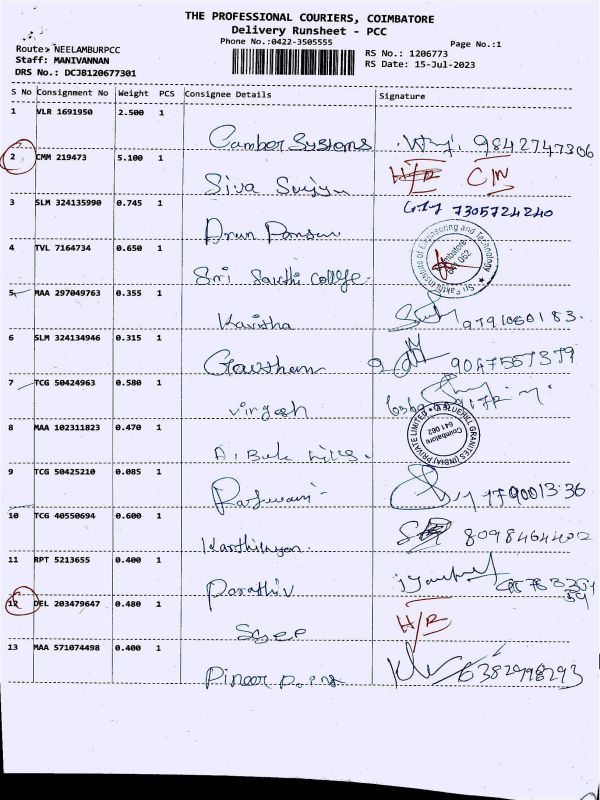 THE PROFESSIONAL COURIERS, COIMBATORE
Delivery Runsheet - PCC
Phone No.:0422-3505555
Page No.:1
Route> NEELAMBURPCC
Staff: MANIVANNAN
DRS No.: DCJB120677301
RS No.: 1206773
RS Date: 15-Jul-2023
S No Consignment No Weight PCS Consignee Details Signature
1 VLR 1691950 2.500 1
Camber Systems 9842747306
2 CMM 219473 5.100 1
Siva H/R CM
3 SLM 324135990 0.745 1
Arun 7305724240
4 TVL 7164734 0.650 1
Sri Sakthi College. Sri Sakthi Institute of Engineering and Technology Coimbatore 641 062
5 MAA 297049763 0.355 1
Kavitha 9791080183.
6 SLM 324134946 0.315 1
Gowtham 9047557379
7 TCG 50424963 0.580 1
8 MAA 102311823 0.470 1
BLUEHILL GRANITES (INDIA) PRIVATE LIMITED Coimbatore 641 062
9 TCG 50425210 0.085 1
10 TCG 40550694 0.600 1
Karthikeyan. 8098464402
11 RPT 5213655 0.400 1
12 DEL 203479647 0.480 1
H/R
13 MAA 571074498 0.400 1
6382998293